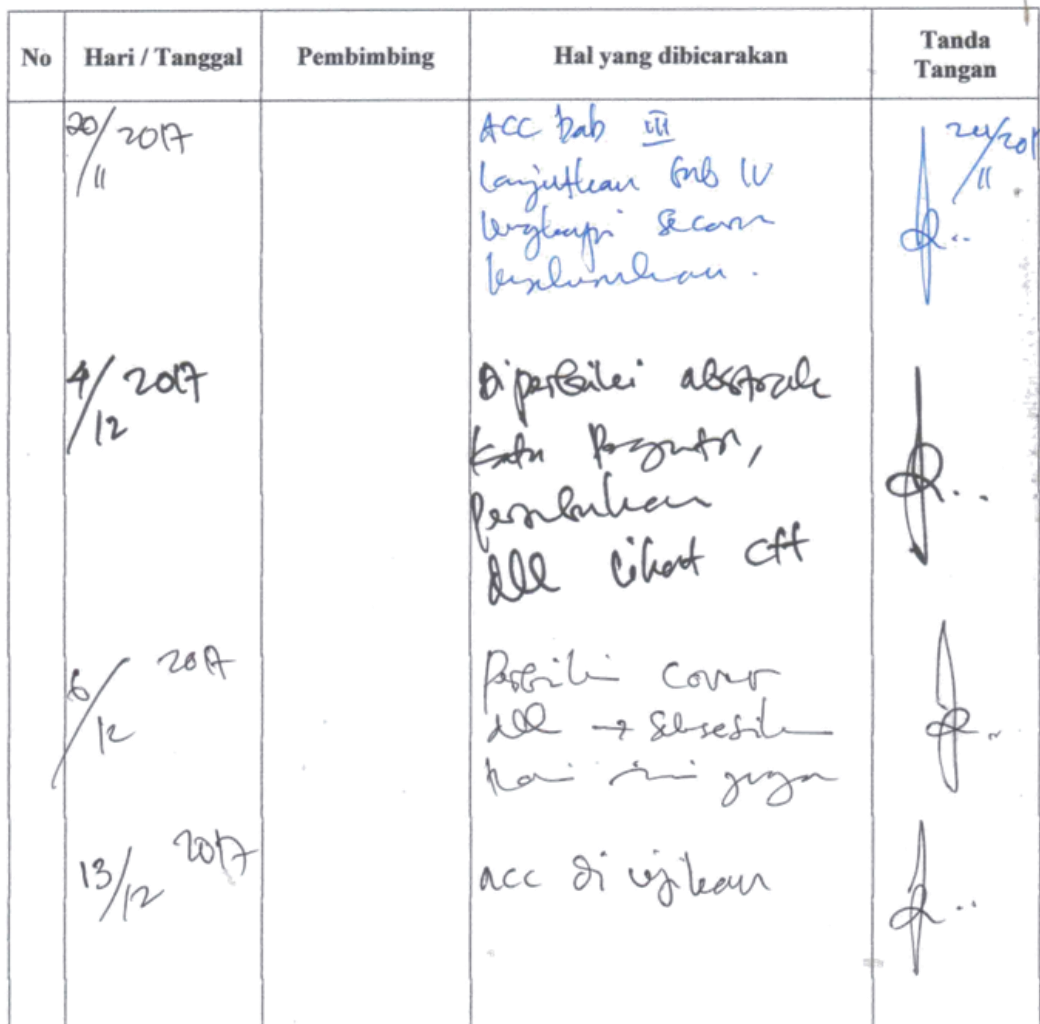 No Hari / Tanggal Pembimbing Hal yang dibicarakan Tanda Tangan
20/11 2017 ACC bab III 24/11
lanjutkan bab IV
lengkapi secara
keseluruhan.
4/12 2017 Diperbaiki abstrak
Kata Pengantar,
dll lihat ctt
6/12 2017 Perbaiki cover
dll → selesaikan
hari ini juga
13/12 2017 acc di ujikan